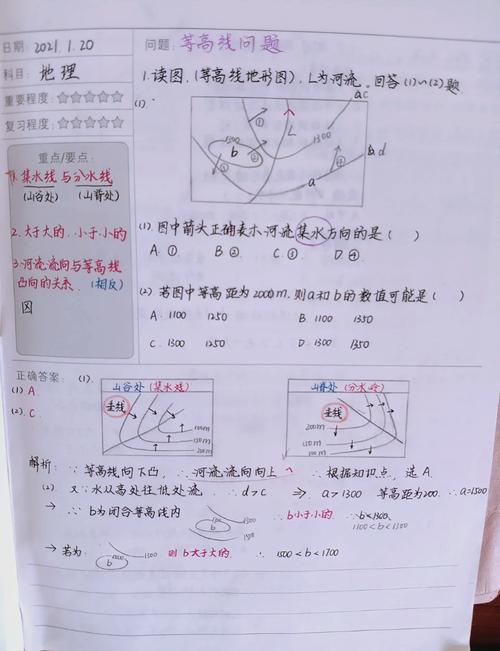 日期: 2021.1.20
科目: 地理
重要程度: ☆☆☆☆☆
复习程度: ☆☆☆☆☆
重点/要点:
1. 集水线与分水线
(山谷处) (山脊处)
2. 大于大的, 小于小的
3. 河流流向与等高线
凸向的关系. (相反)
因
问题: 等高线问题
1. 读图, (等高线地形图), L为河流. 回答 (1)~(2) 题
(1).
1300
b
①
②
L
1300
a c
④
b,d
a
(1). 图中箭头正确表示河流集水方向的是 ( )
A. ① B ② C. ① D ④
(2) 若图中等高距为2000m, 则a和b的数值可能是 ( )
A. 1100 1250 B 1100 1350
C. 1300 1250 D. 1300 1350
正确答案: (1).
(1) A.
(2). C.
山谷处 (集水线)
垂线
100m
150m
200m
山脊处 (分水岭)
垂线
200m
150m
100m
解析: ∵ 等高线向下凸, ∴ 河流流向向上 ∴ 根据知识点, 选 A.
(2) 又∵水从高处往低处流 ∴ d>c ⇒ a>1300 等高距为200. ∴a=1500
→ ∵ b为闭合等高线内
1300
b
1300
1500
∴ b小于小的. ∴ b<1300,
1100<b<1300
→ 若为:
1300
b
则 b大于大的. ∴ 1500<b<1700